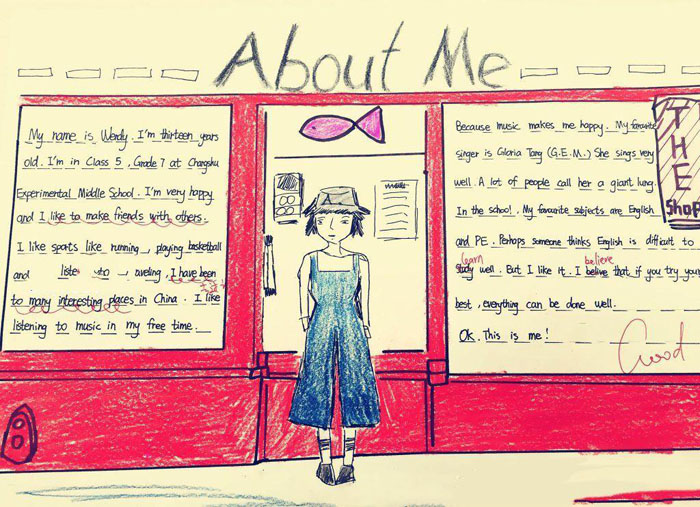 About Me
My name is Wendy. I'm thirteen years
old. I'm in Class 5, Grade 7 at Changshu
Experimental Middle School. I'm very happy
and I like to make friends with others.
I like sports like running, playing basketball
and traveling. I have been
to many interesting places in China. I like
listening to music in my free time.
Because music makes me happy. My favourite
singer is Gloria Tang (G.E.M.) She sings very
well. A lot of people call her a giant lung.
In the school. My favourite subjects are English
and PE. Perhaps someone thinks English is difficult to
learn
study well. But I like it. I belive that if you try your
believe
best, everything can be done well.
Ok. This is me!
Good
THE
ShoP